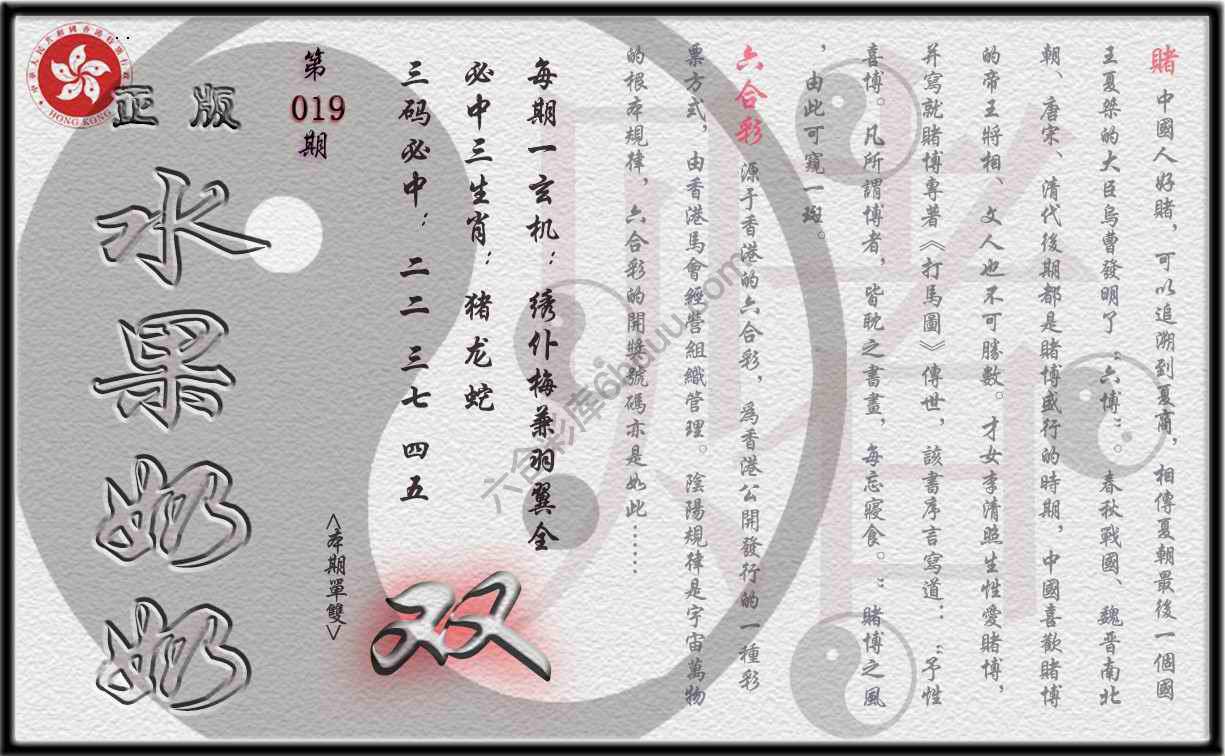 賭 中國人好賭，可以追溯到夏商，相傳夏朝最後一個國
王夏桀的大臣烏曹發明了“六博”。春秋戰國、魏晋南北
朝、唐宋、清代後期都是賭博盛行的時期，中國喜歡賭博
的帝王將相、文人也不可勝數。才女李清照生性愛賭博，
并寫就賭博專著《打馬圖》傳世，該書序言寫道：“予性
喜博。凡所謂博者，皆耽之書畫，每忘寢食。”賭博之風
，由此可窺一斑。
六合彩 源于香港的六合彩，爲香港公開發行的一種彩
票方式，由香港馬會經營組織管理。陰陽規律是宇宙萬物
的根本規律，六合彩的開獎號碼亦是如此……
每期一玄机：绣仆梅兼羽翼全
必中三生肖：猪龙蛇
三码必中：二二 三七 四五
第
019
期
<本期單雙>
双
正版
水果奶奶
HONG KONG
六合彩库6hduu.com